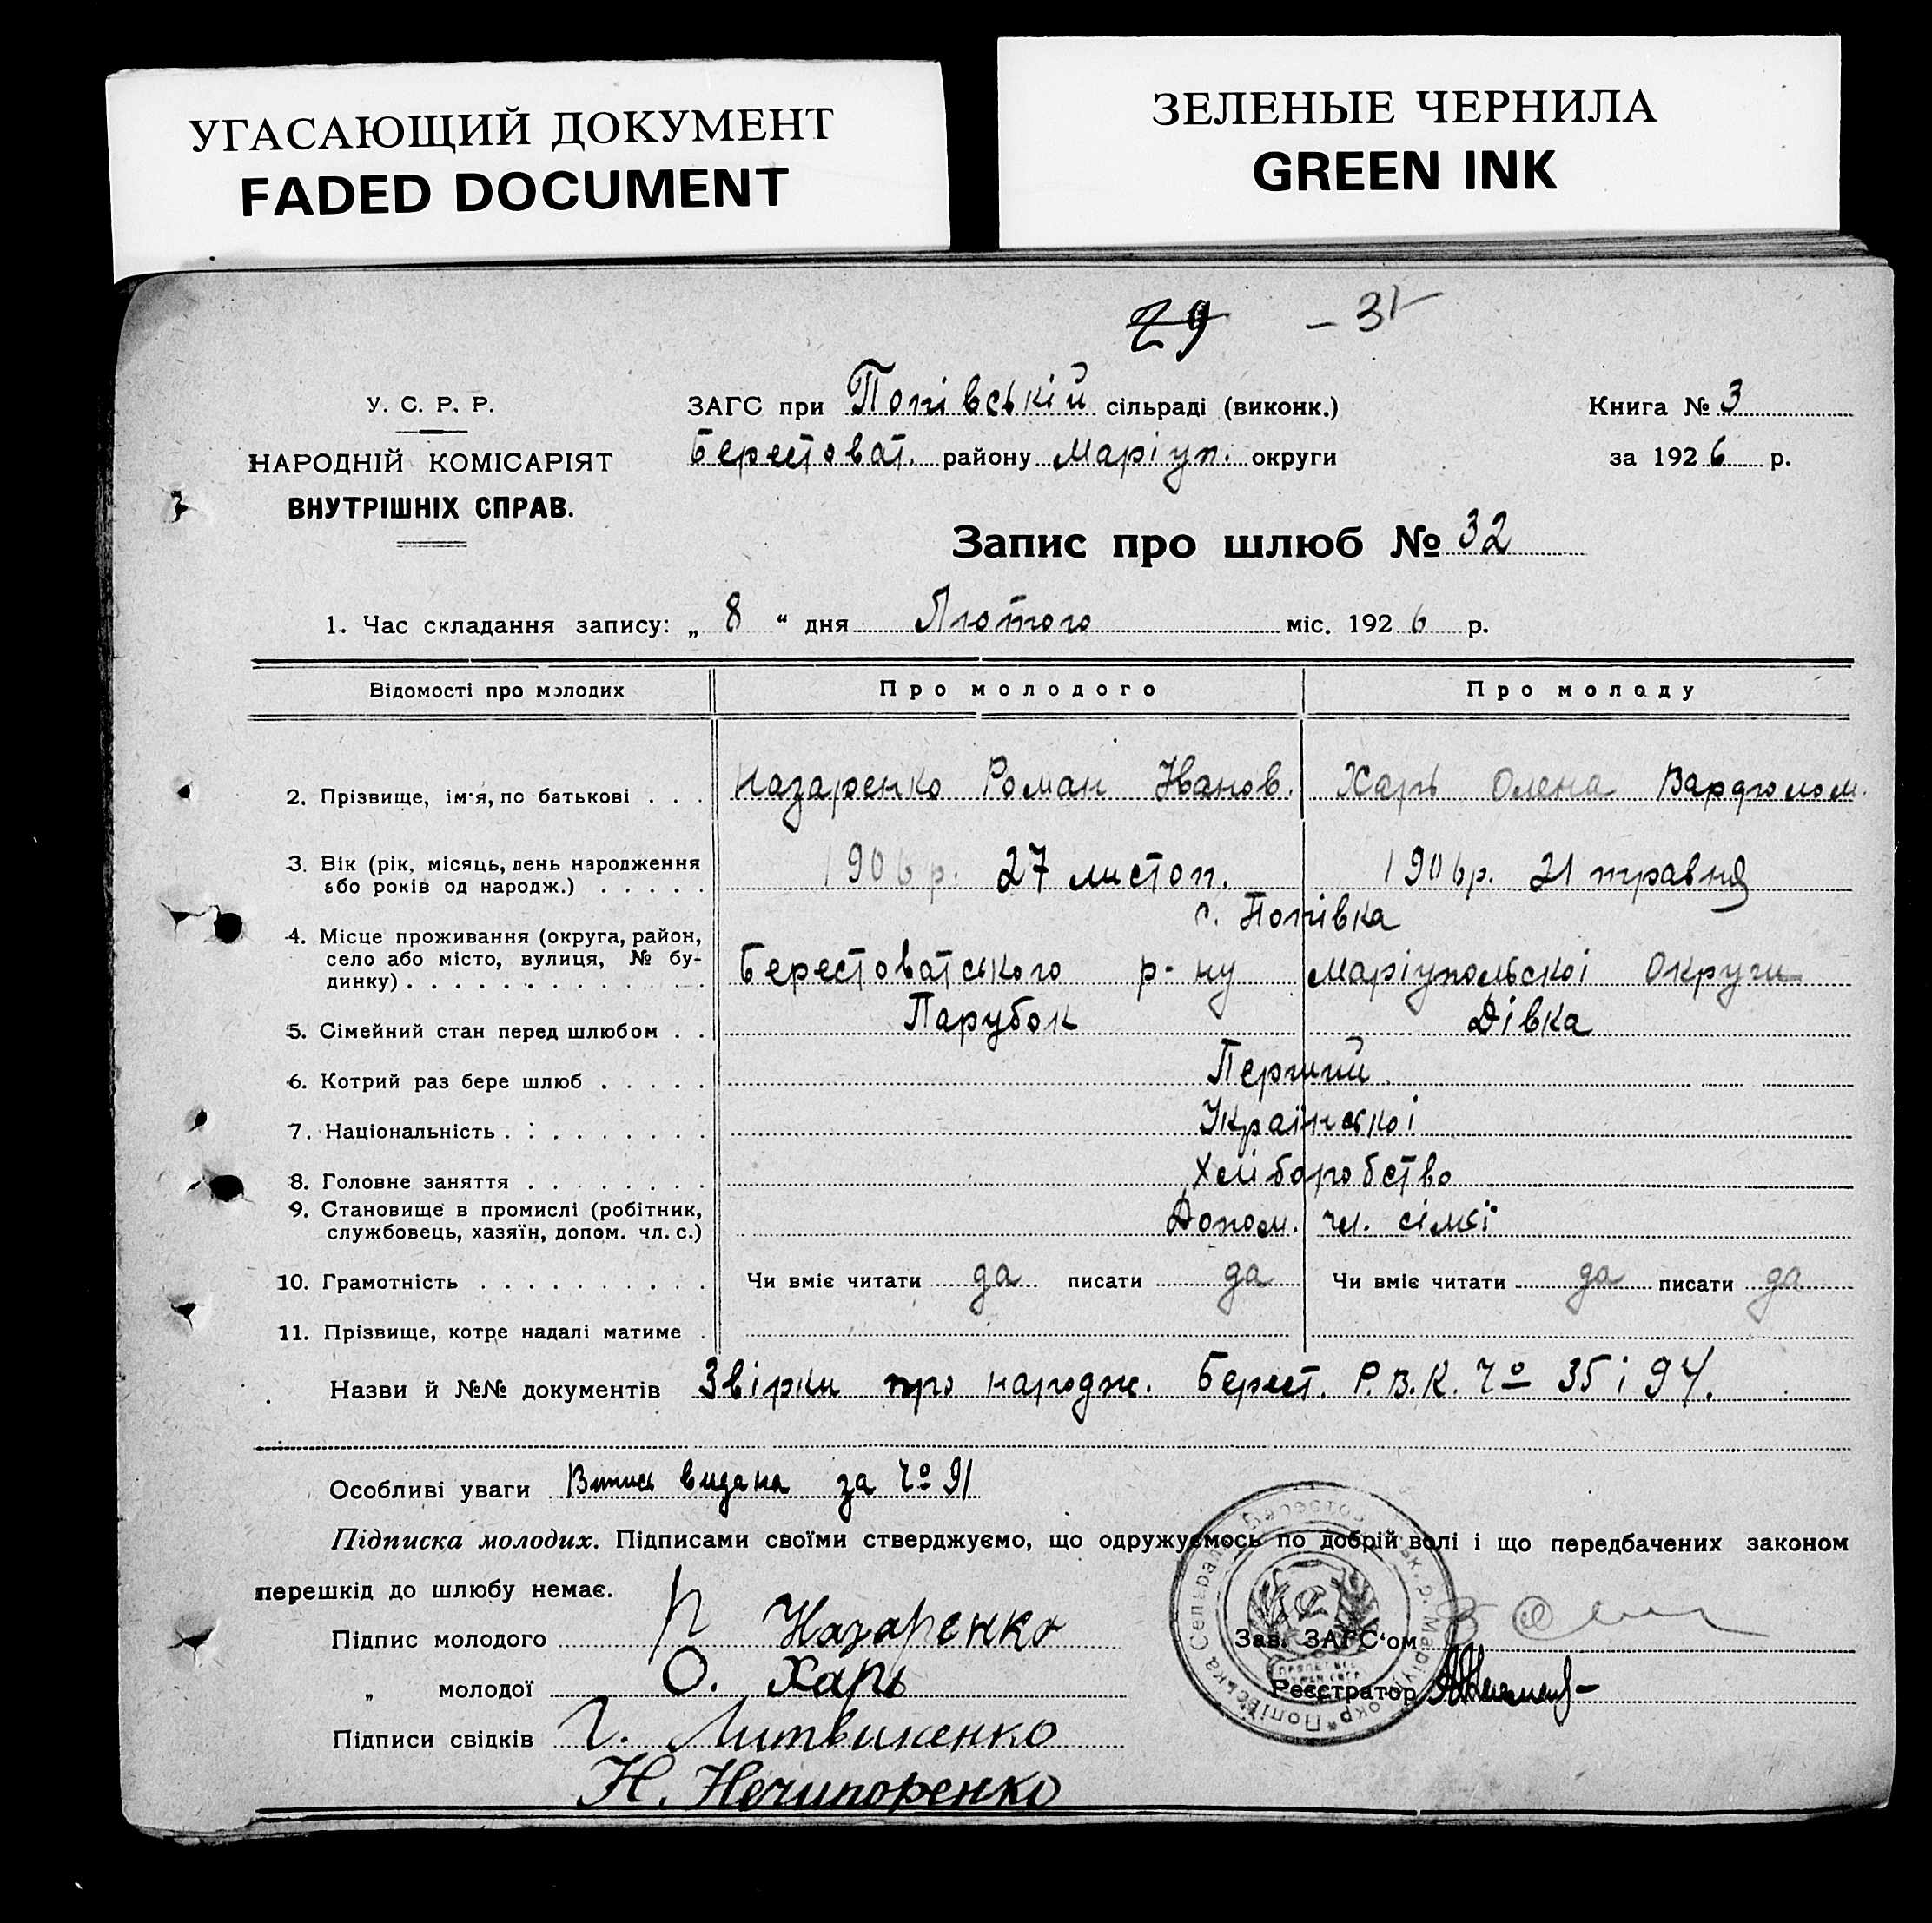 УГАСАЮЩИЙ ДОКУМЕНТ
FADED DOCUMENT
ЗЕЛЕНЫЕ ЧЕРНИЛА
GREEN INK
29 – 31
У. С. Р. Р.
НАРОДНІЙ КОМІСАРІЯТ
ВНУТРІШНІХ СПРАВ.
ЗАГС при Попівській сільраді (виконк.)
Берестоват. району Маріуп. округи
Книга № 3
за 1926 р.
Запис про шлюб № 32
1. Час складання запису: „ 8 “ дня Лютого міс. 1926 р.
Відомості про молодих Про молодого Про молоду
2. Прізвище, ім'я, по батькові . . . Назаренко Роман Іванов. Харь Олена Вардголом.
3. Вік (рік, місяць, день народження
або років од народж.) . . . . . 1906р. 27 листоп. 1906р. 21 травня
с. Попівка
4. Місце проживання (округа, район,
село або місто, вулиця, № бу-
динку) . . . . . . . . . . . . . Берестоватського р-ну Маріупольскоі Округи
5. Сімейний стан перед шлюбом . . Парубок Дівка
6. Котрий раз бере шлюб . . . . . Перший
7. Національність . . . . . . . . . Українскоі
8. Головне заняття . . . . . . . . Хліборобство
9. Становище в промислі (робітник,
службовець, хазяїн, допом. чл. с.) Допом. чл. сімї
10. Грамотність . . . . . . . . . . Чи вміє читати да писати да Чи вміє читати да писати да
11. Прізвище, котре надалі матиме .
Назви й №№ документів Звірки про народж. Берест. Р.В.К. Чо 35 і 94.
Особливі уваги Випись видана за Чо 91
Підписка молодих. Підписами своїми стверджуємо, що одружуємось по добрій волі і що передбачених законом
перешкід до шлюбу немає.
Підпис молодого Р Назаренко
„ молодої О. Харь
Підписи свідків Г. Литвиненко
Н. Нечипоренко
Зав. ЗАГС'ом
Реєстратор